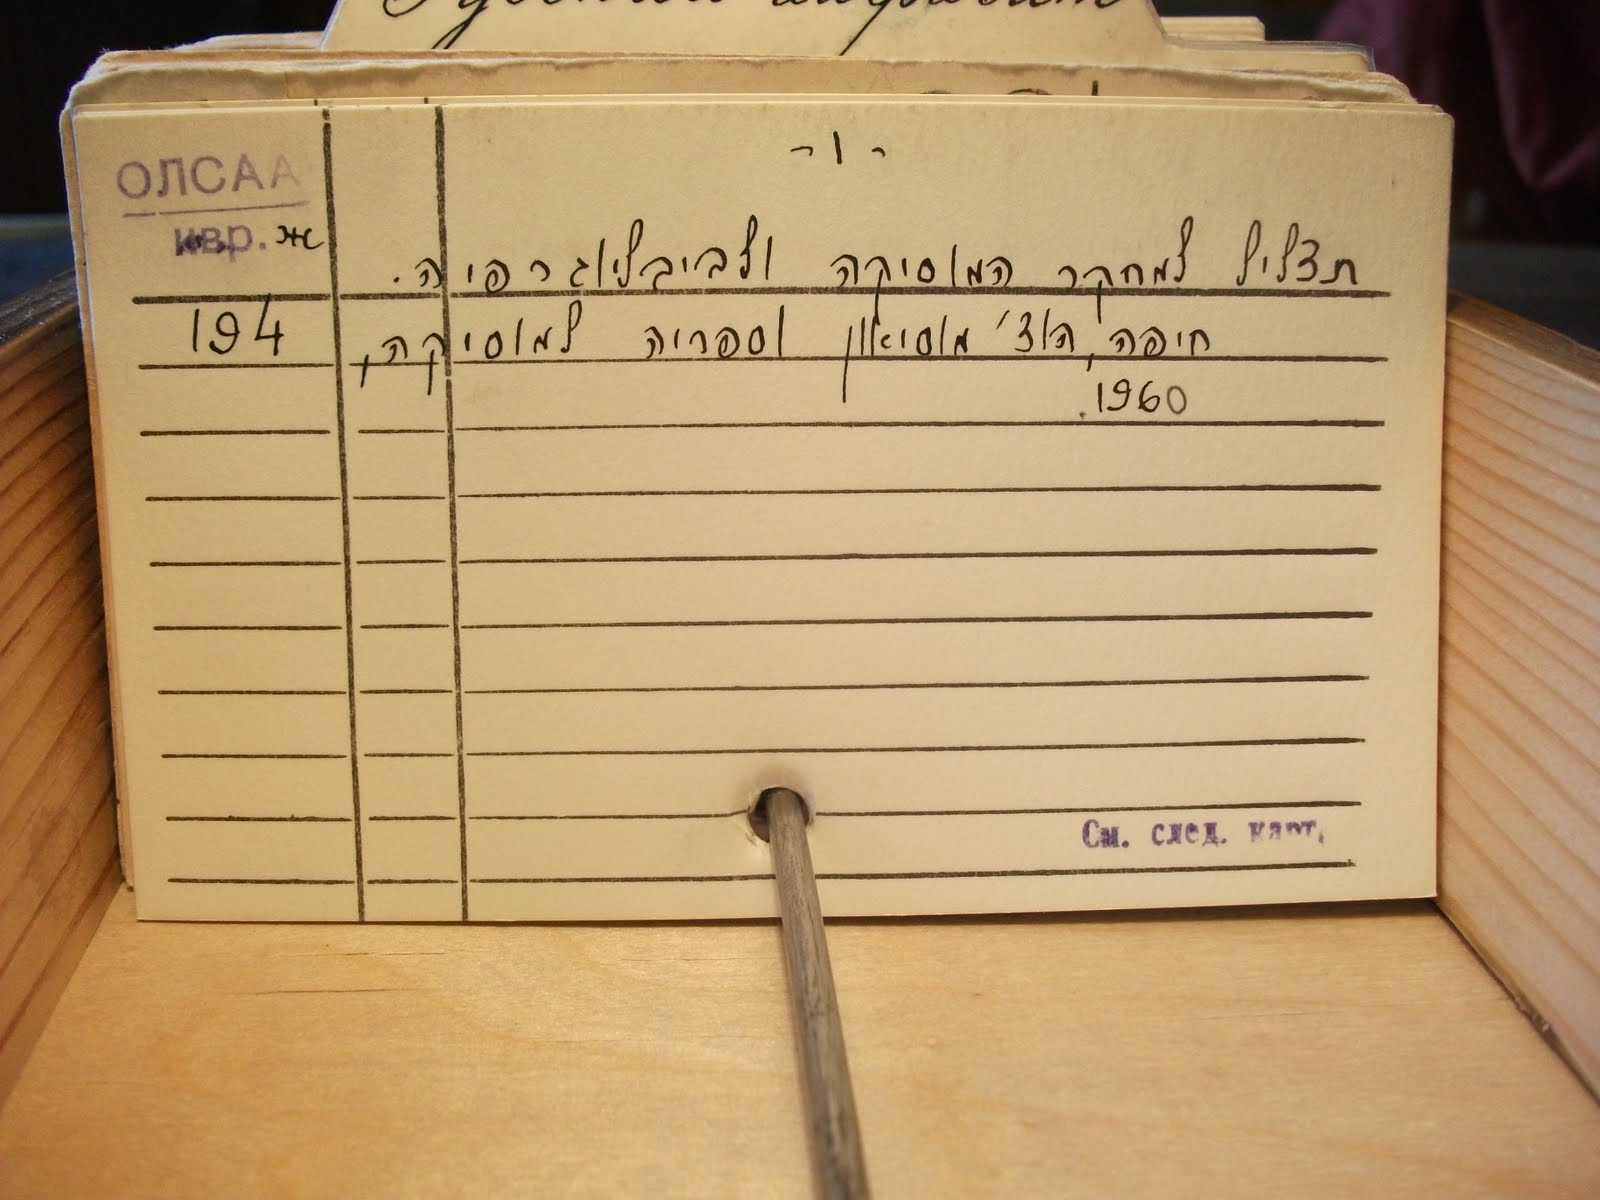 Русский алфавит
- 1 -
ОЛСАА
ивр. ж
194
תצליל למחקר המוסיקה ולביבליוגרפיה.
חיפה, הוצ' מוסיאון וספריה למוסיקה,
1960.
См. след. карт.